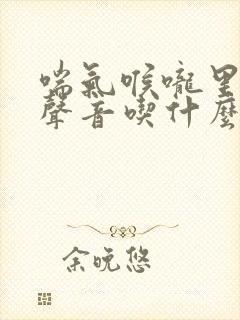 喘氣喉嚨里
聲音喫什麼
余晚悠